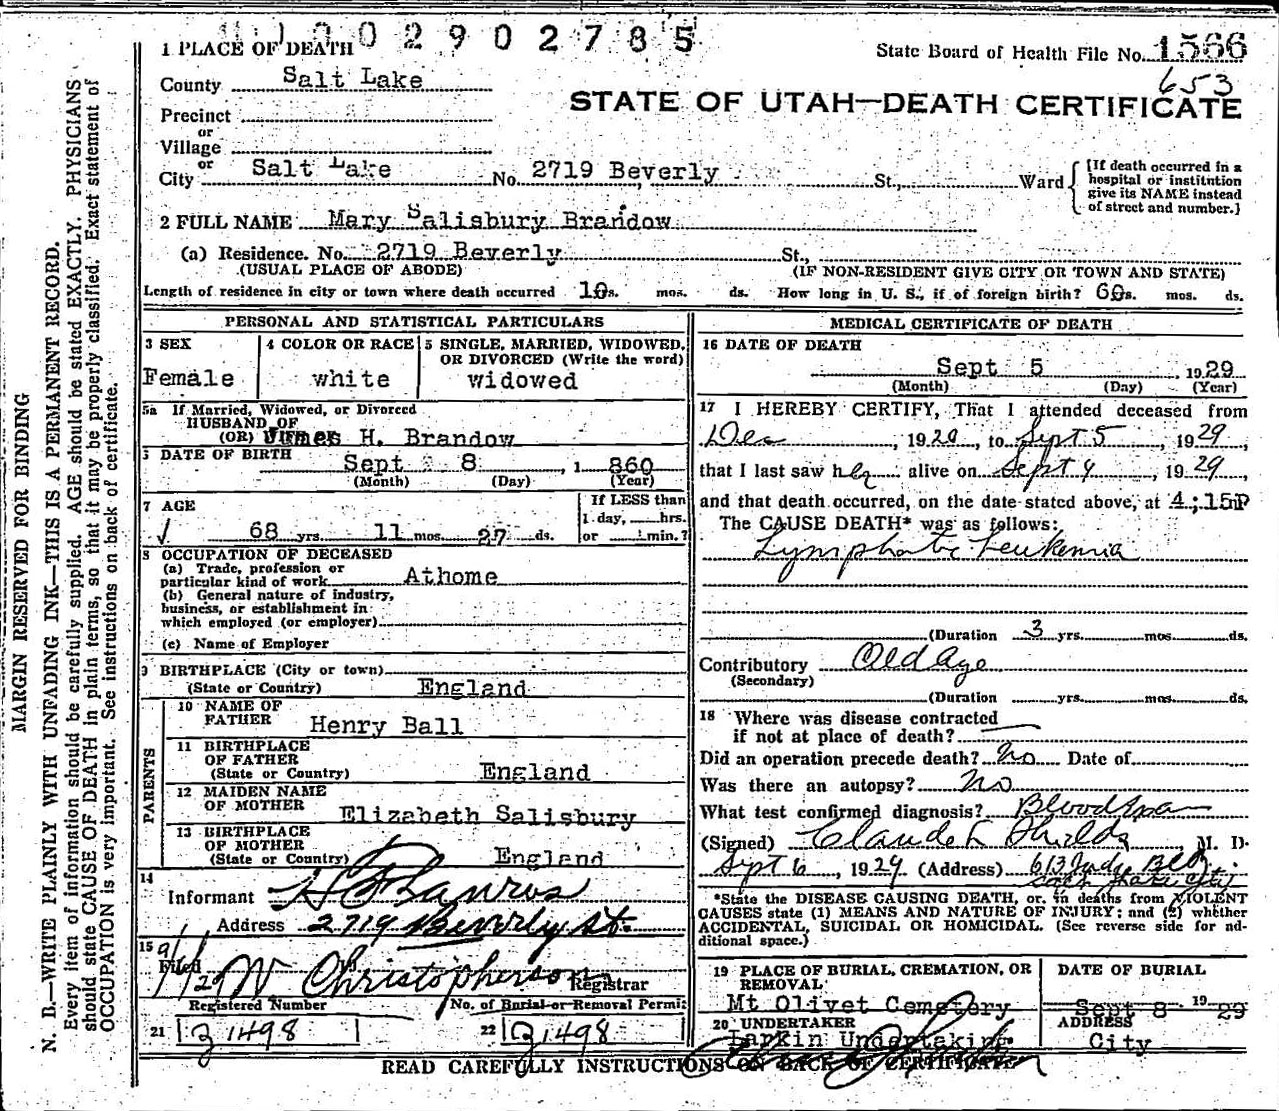 002902785
1 PLACE OF DEATH
State Board of Health File No. 1566
County Salt Lake
653
STATE OF UTAH—DEATH CERTIFICATE
Precinct
or
Village
or
City Salt Lake No. 2719 Beverly St., Ward
[If death occurred in a
hospital or institution
give its NAME instead
of street and number.]
2 FULL NAME Mary Salisbury Brandow
(a) Residence. No. 2719 Beverly St.,
(USUAL PLACE OF ABODE) (IF NON-RESIDENT GIVE CITY OR TOWN AND STATE)
Length of residence in city or town where death occurred 10 s. mos. ds. How long in U. S., if of foreign birth? 60 s. mos. ds.
PERSONAL AND STATISTICAL PARTICULARS
3 SEX
Female
4 COLOR OR RACE
white
5 SINGLE, MARRIED, WIDOWED,
OR DIVORCED (Write the word)
widowed
5a If Married, Widowed, or Divorced
HUSBAND OF
(OR) H. Brandow
6 DATE OF BIRTH
Sept 8, 1 860
(Month) (Day) (Year)
7 AGE
68 yrs. 11 mos. 27 ds.
If LESS than
1 day, hrs.
or min.?
8 OCCUPATION OF DECEASED
(a) Trade, profession or
particular kind of work Athome
(b) General nature of industry,
business, or establishment in
which employed (or employer)
(c) Name of Employer
9 BIRTHPLACE (City or town)
(State or Country) England
PARENTS
10 NAME OF
FATHER Henry Ball
11 BIRTHPLACE
OF FATHER
(State or Country) England
12 MAIDEN NAME
OF MOTHER Elizabeth Salisbury
13 BIRTHPLACE
OF MOTHER
(State or Country) England
14
Informant
Address 2719 Beverly St.
15
Filed 9/ /29 W Christopherson Registrar
Registered Number No. of Burial or Removal Permit
21 1498 22 1498
MEDICAL CERTIFICATE OF DEATH
16 DATE OF DEATH
Sept 5 1929
(Month) (Day) (Year)
17 I HEREBY CERTIFY, That I attended deceased from
Dec, 1920, to Sept 5, 1929,
that I last saw her alive on Sept 4, 1929
and that death occurred, on the date stated above, at 4:15P
The CAUSE DEATH* was as follows:
Lymphatic Leukemia
(Duration 3 yrs. mos. ds.
Contributory Old Age
(Secondary)
(Duration yrs. mos. ds.
18 Where was disease contracted
if not at place of death?
Did an operation precede death? No Date of
Was there an autopsy? No
What test confirmed diagnosis? Blood
(Signed) Claude L Shields, M. D.
Sept 6, 1929 (Address) 613 Judge Bldg.
Salt Lake City
*State the DISEASE CAUSING DEATH, or, in deaths from VIOLENT
CAUSES state (1) MEANS AND NATURE OF INJURY; and (2) whether
ACCIDENTAL, SUICIDAL OR HOMICIDAL. (See reverse side for ad-
ditional space.)
19 PLACE OF BURIAL, CREMATION, OR
REMOVAL
Mt Olivet Cemetery
DATE OF BURIAL
Sept 8 1929
20 UNDERTAKER
Larkin Undertaking
ADDRESS
City
READ CAREFULLY INSTRUCTIONS ON BACK OF CERTIFICATE
MARGIN RESERVED FOR BINDING
N. B.—WRITE PLAINLY WITH UNFADING INK—THIS IS A PERMANENT RECORD.
Every item of information should be carefully supplied. AGE should be stated EXACTLY. PHYSICIANS
should state CAUSE OF DEATH in plain terms, so that it may be properly classified. Exact statement of
OCCUPATION is very important. See instructions on back of certificate.